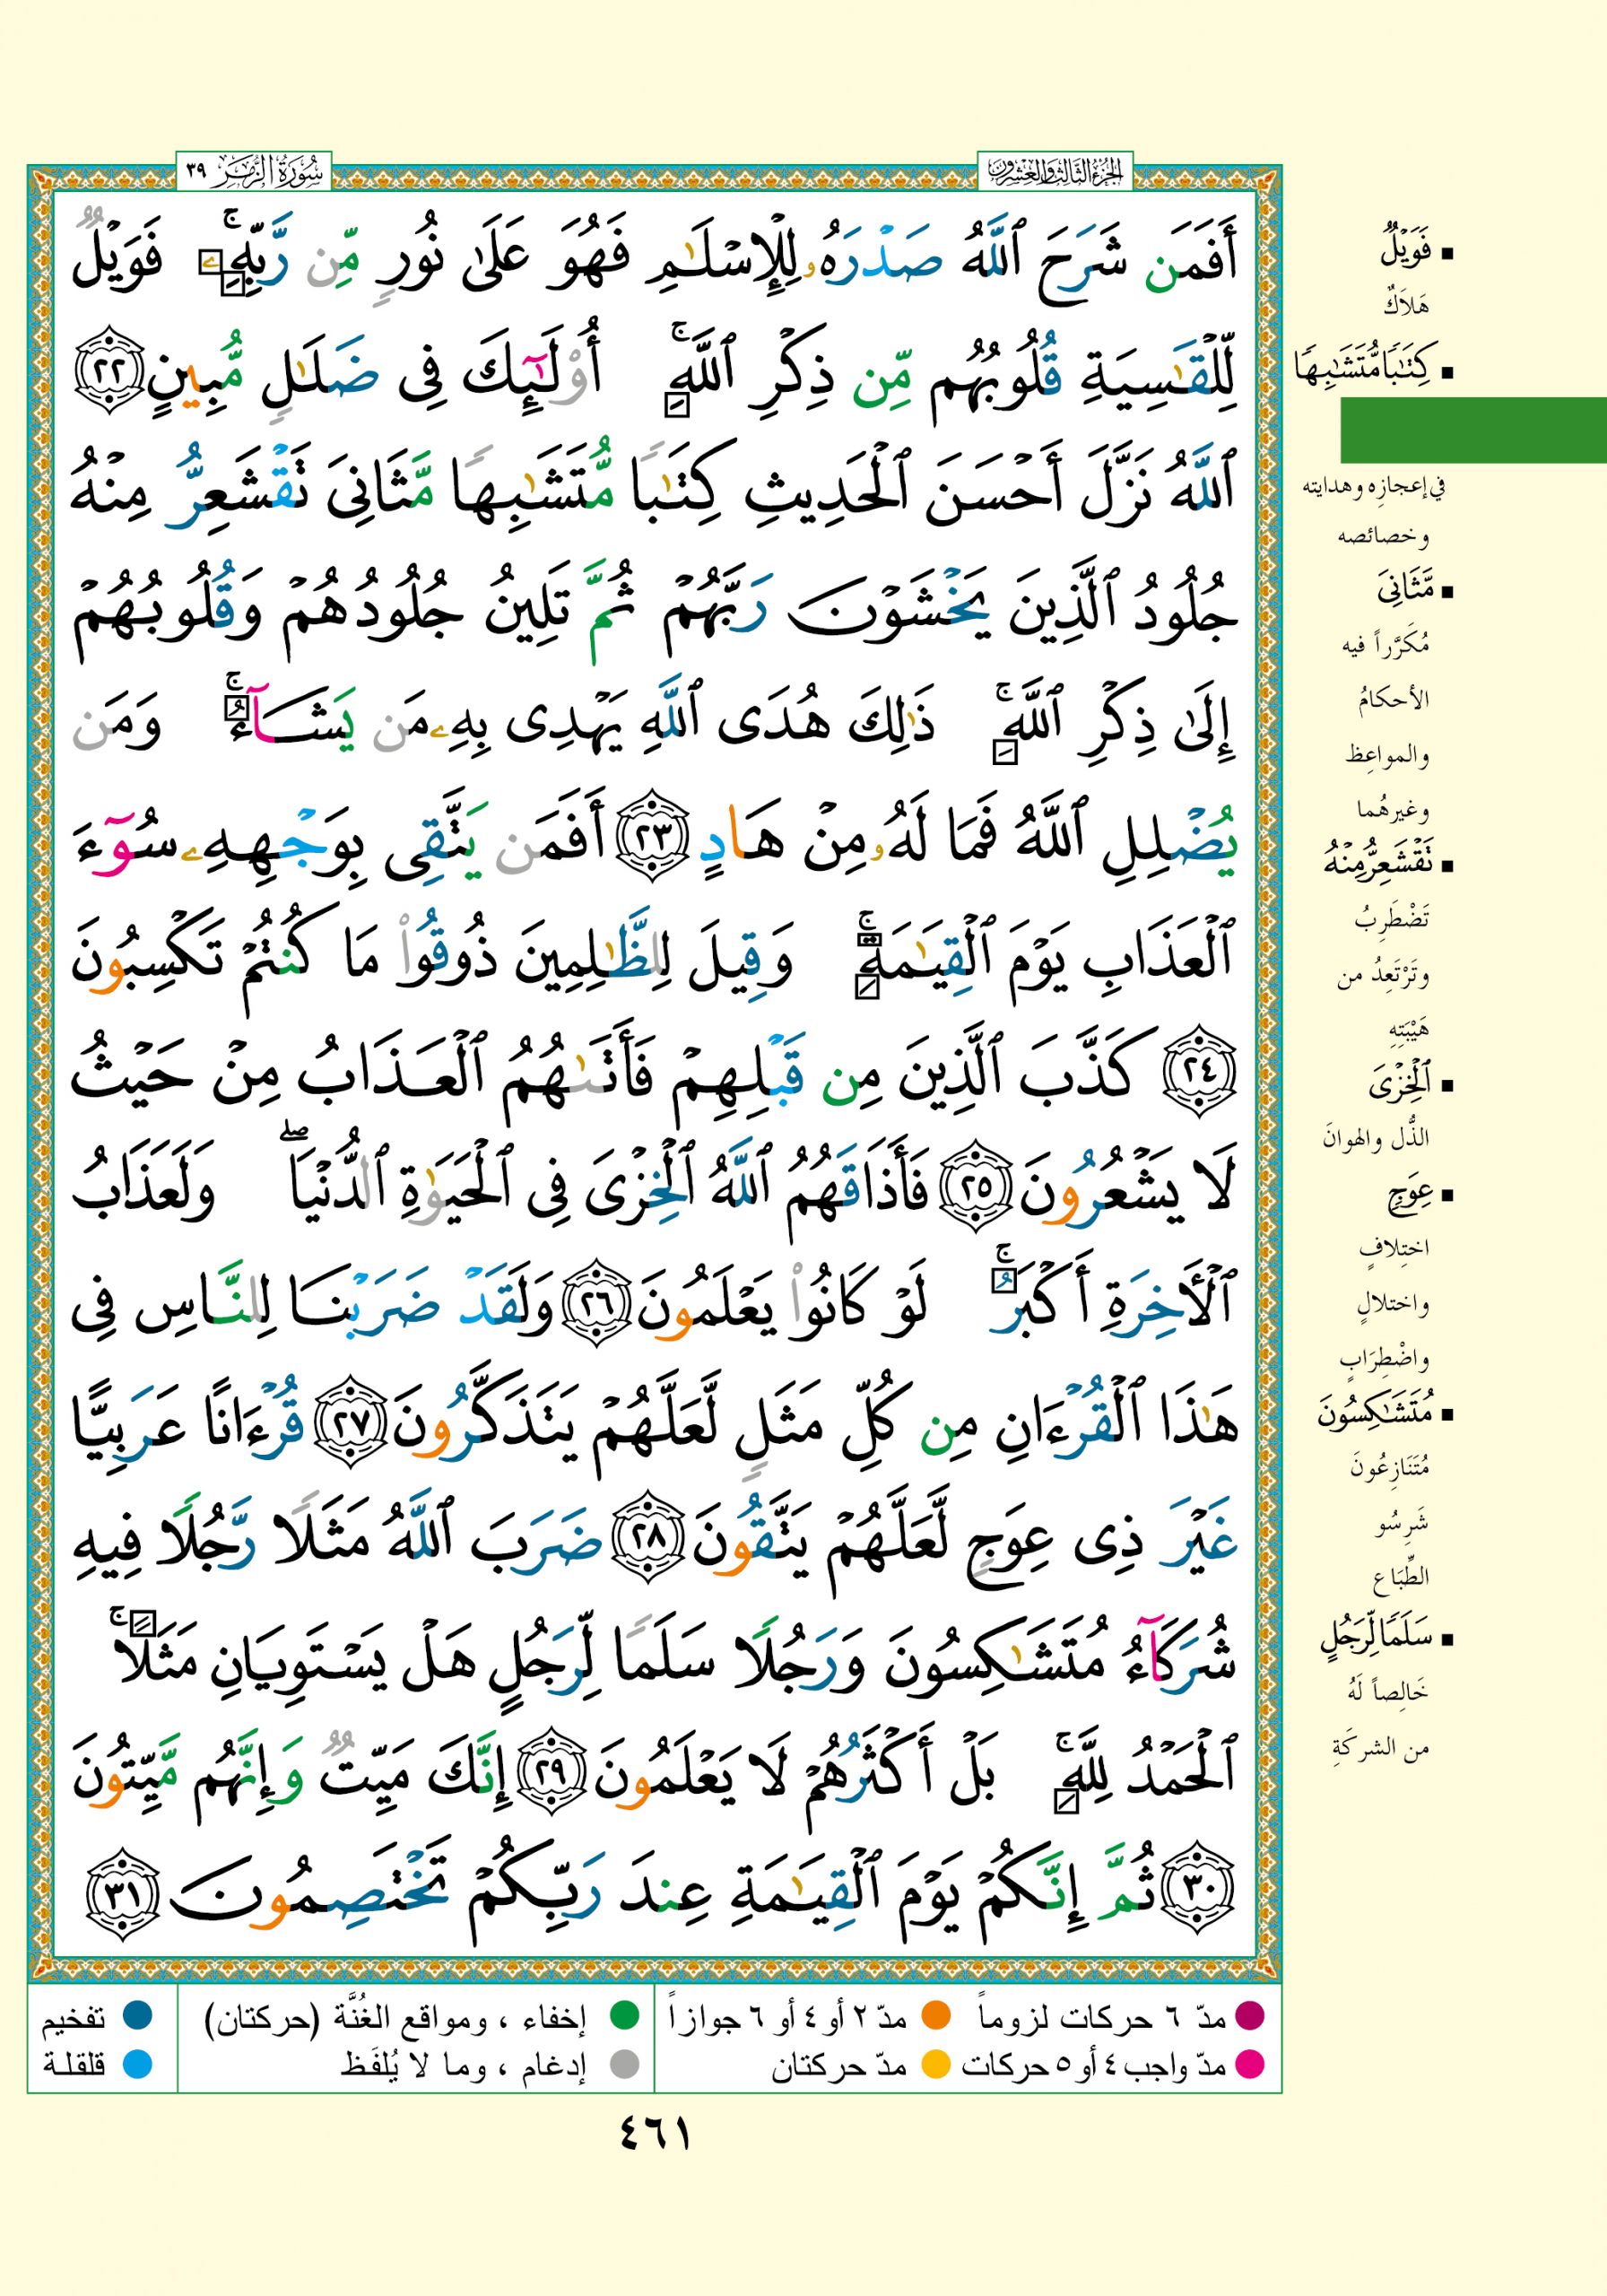 الجزء الثالث والعشرون
سورة الزمر ٣٩
أَفَمَن شَرَحَ ٱللَّهُ صَدْرَهُۥ لِلْإِسْلَـٰمِ فَهُوَ عَلَىٰ نُورٍ مِّن رَّبِّهِۦ ۚ فَوَيْلٌ
لِّلْقَـٰسِيَةِ قُلُوبُهُم مِّن ذِكْرِ ٱللَّهِ ۚ أُو۟لَـٰٓئِكَ فِى ضَلَـٰلٍ مُّبِينٍ ٢٢
ٱللَّهُ نَزَّلَ أَحْسَنَ ٱلْحَدِيثِ كِتَـٰبًا مُّتَشَـٰبِهًا مَّثَانِىَ تَقْشَعِرُّ مِنْهُ
جُلُودُ ٱلَّذِينَ يَخْشَوْنَ رَبَّهُمْ ثُمَّ تَلِينُ جُلُودُهُمْ وَقُلُوبُهُمْ
إِلَىٰ ذِكْرِ ٱللَّهِ ۚ ذَٰلِكَ هُدَى ٱللَّهِ يَهْدِى بِهِۦ مَن يَشَـآءُ ۚ وَمَن
يُضْلِلِ ٱللَّهُ فَمَا لَهُۥ مِنْ هَادٍ ٢٣ أَفَمَن يَتَّقِى بِوَجْهِهِۦ سُوٓءَ
ٱلْعَذَابِ يَوْمَ ٱلْقِيَـٰمَةِ ۚ وَقِيلَ لِلظَّـٰلِمِينَ ذُوقُوا۟ مَا كُنتُمْ تَكْسِبُونَ
٢٤ كَذَّبَ ٱلَّذِينَ مِن قَبْلِهِمْ فَأَتَىٰهُمُ ٱلْعَذَابُ مِنْ حَيْثُ
لَا يَشْعُرُونَ ٢٥ فَأَذَاقَهُمُ ٱللَّهُ ٱلْخِزْىَ فِى ٱلْحَيَوٰةِ ٱلدُّنْيَا ۖ وَلَعَذَابُ
ٱلْـَٔاخِرَةِ أَكْبَرُ ۚ لَوْ كَانُوا۟ يَعْلَمُونَ ٢٦ وَلَقَدْ ضَرَبْنَا لِلنَّاسِ فِى
هَـٰذَا ٱلْقُرْءَانِ مِن كُلِّ مَثَلٍ لَّعَلَّهُمْ يَتَذَكَّرُونَ ٢٧ قُرْءَانًا عَرَبِيًّا
غَيْرَ ذِى عِوَجٍ لَّعَلَّهُمْ يَتَّقُونَ ٢٨ ضَرَبَ ٱللَّهُ مَثَلًا رَّجُلًا فِيهِ
شُرَكَآءُ مُتَشَـٰكِسُونَ وَرَجُلًا سَلَمًا لِّرَجُلٍ هَلْ يَسْتَوِيَانِ مَثَلًا ۚ
ٱلْحَمْدُ لِلَّهِ ۚ بَلْ أَكْثَرُهُمْ لَا يَعْلَمُونَ ٢٩ إِنَّكَ مَيِّتٌ وَإِنَّهُم مَّيِّتُونَ
٣٠ ثُمَّ إِنَّكُمْ يَوْمَ ٱلْقِيَـٰمَةِ عِندَ رَبِّكُمْ تَخْتَصِمُونَ ٣١
▪ فَوَيْلٌ
هَلَاكٌ
▪ كِتَـٰبًا مُّتَشَـٰبِهًا
في إعجازِه وهدايته
وخصائصه
▪ مَّثَانِىَ
مُكَرَّراً فيه
الأحكامُ
والمواعِظ
وغيرهُما
▪ تَقْشَعِرُّ مِنْهُ
تَضْطَرِبُ
وتَرْتَعِدُ من
هَيْبَتِهِ
▪ ٱلْخِزْىَ
الذُّل والهوانَ
▪ عِوَجٍ
اختِلافٍ
واختلالٍ
واضْطِرَابٍ
▪ مُتَشَـٰكِسُونَ
مُتَنَازِعُونَ
شَرِسُو
الطِّبَاع
▪ سَلَمًا لِّرَجُلٍ
خَالِصاً لَهُ
من الشركَةِ
مدّ ٦ حركات لزوماً
مدّ ٢ أو ٤ أو ٦ جوازاً
إخفاء ، ومواقع الغُنَّة (حركتان)
تفخيم
مدّ واجب ٤ أو ٥ حركات
مدّ حركتان
إدغام ، وما لا يُلفَظ
قلقلة
٤٦١